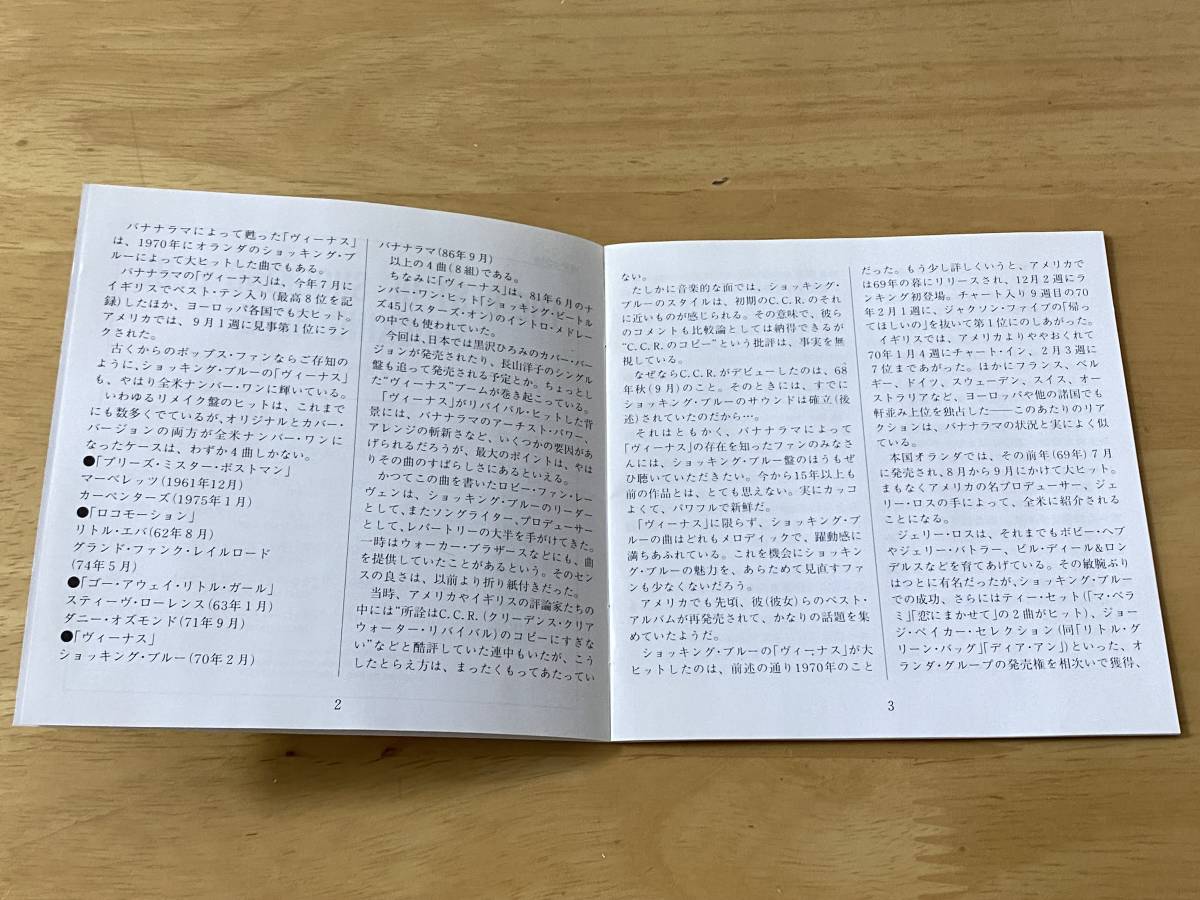 バナナラマによって甦った「ヴィーナス」
は、1970年にオランダのショッキング・ブ
ルーによって大ヒットした曲でもある。
バナナラマの「ヴィーナス」は、今年7月に
イギリスでベスト・テン入り(最高8位を記
録)したほか、ヨーロッパ各国でも大ヒット。
アメリカでは、9月1週に見事第1位にラン
クされた。
古くからのポップス・ファンならご存知の
ように、ショッキング・ブルーの「ヴィーナス」
も、やはり全米ナンバー・ワンに輝いている。
いわゆるリメイク盤のヒットは、これまで
にも数多くでているが、オリジナルとカバー・
バージョンの両方が全米ナンバー・ワンに
なったケースは、わずか4曲しかない。
●「プリーズ・ミスター・ポストマン」
マーベレッツ(1961年12月)
カーペンターズ(1975年1月)
●「ロコモーション」
リトル・エバ(62年8月)
グランド・ファンク・レイルロード
(74年5月)
●「ゴー・アウェイ・リトル・ガール」
スティーヴ・ローレンス(63年1月)
ダニー・オズモンド(71年9月)
●「ヴィーナス」
ショッキング・ブルー(70年2月)
バナナラマ(86年9月)
以上の4曲(8組)である。
ちなみに「ヴィーナス」は、81年6月のナ
ンバー・ワン・ヒット「ショッキング・ビートル
ズ45」(スターズ・オン)のイントロ・メドレー
の中でも使われていた。
今回は、日本では黒沢ひろみのカバー・バー
ジョンが発売されたり、長山洋子のシングル
盤も追って発売される予定とか。ちょっとし
た“ヴィーナス”ブームが巻き起こっている。
「ヴィーナス」がリバイバル・ヒットした背
景には、バナナラマのアーチスト・パワー、
アレンジの斬新さなど、いくつかの要因があ
げられるだろうが、最大のポイントは、やは
りその曲のすばらしさにあるといえる。
かつてこの曲を書いたロビー・ファン・レー
ヴェンは、ショッキング・ブルーのリーダー
として、またソングライター、プロデューサー
として、レパートリーの大半を手がけてきた。
一時はウォーカー・ブラザースなどにも、曲
を提供していたことがあるという。そのセン
スの良さは、以前より折り紙付きだった。
当時、アメリカやイギリスの評論家たちの
中には“所詮はC.C.R.(クリーデンス・クリア
ウォーター・リバイバル)のコピーにすぎな
い”などと酷評していた連中もいたが、こう
したとらえ方は、まったくもってあたってい
2
ない。
たしかに音楽的な面では、ショッキング・
ブルーのスタイルは、初期のC.C.R.のそれ
に近いものが感じられる。その意味で、彼ら
のコメントも比較論としては納得できるが
“C.C.R.のコピー”という批評は、事実を無
視している。
なぜならC.C.R.がデビューしたのは、68
年秋(9月)のこと。そのときには、すでに
ショッキング・ブルーのサウンドは確立(後
述)されていたのだから…。
それはともかく、バナナラマによって
「ヴィーナス」の存在を知ったファンのみなさ
んには、ショッキング・ブルー盤のほうもぜ
ひ聴いていただきたい。今から15年以上も
前の作品とは、とても思えない。実にカッコ
よくて、パワフルで新鮮だ。
「ヴィーナス」に限らず、ショッキング・ブ
ルーの曲はどれもメロディックで、躍動感に
満ちあふれている。これを機会にショッキン
グ・ブルーの魅力を、あらためて見直すファ
ンも少なくないだろう。
アメリカでも先頃、彼(彼女)らのベスト・
アルバムが再発売されて、かなりの話題を集
めていたようだ。
ショッキング・ブルーの「ヴィーナス」が大
ヒットしたのは、前述の通り1970年のこと
だった。もう少し詳しくいうと、アメリカで
は69年の暮にリリースされ、12月2週にラ
ンキング初登場。チャート入り9週目の70
年2月1週に、ジャクソン・ファイブの「帰っ
てほしいの」を抜いて第1位にのしあがった。
イギリスでは、アメリカよりややおくれて
70年1月4週にチャート・イン、2月3週に
7位まであがった。ほかにフランス、ベル
ギー、ドイツ、スウェーデン、スイス、オー
ストラリアなど、ヨーロッパや他の諸国でも
軒並み上位を独占した——このあたりのリア
クションは、バナナラマの状況と実によく似
ている。
本国オランダでは、その前年(69年)7月
に発売され、8月から9月にかけて大ヒット。
まもなくアメリカの名プロデューサー、ジェ
リー・ロスの手によって、全米に紹介される
ことになる。
ジェリー・ロスは、それまでもボビー・ヘブ
やジェリー・バトラー、ビル・ディール&ロン
デルスなどを育てあげている。その敏腕ぶり
はつとに有名だったが、ショッキング・ブルー
での成功、さらにはティー・セット(「マ・ベラ
ミ」「恋にまかせて」の2曲がヒット)、ジョー
ジ・ベイカー・セレクション(同「リトル・グ
リーン・バッグ」「ディア・アン」)といった、オ
ランダ・グループの発売権を相次いで獲得、
3